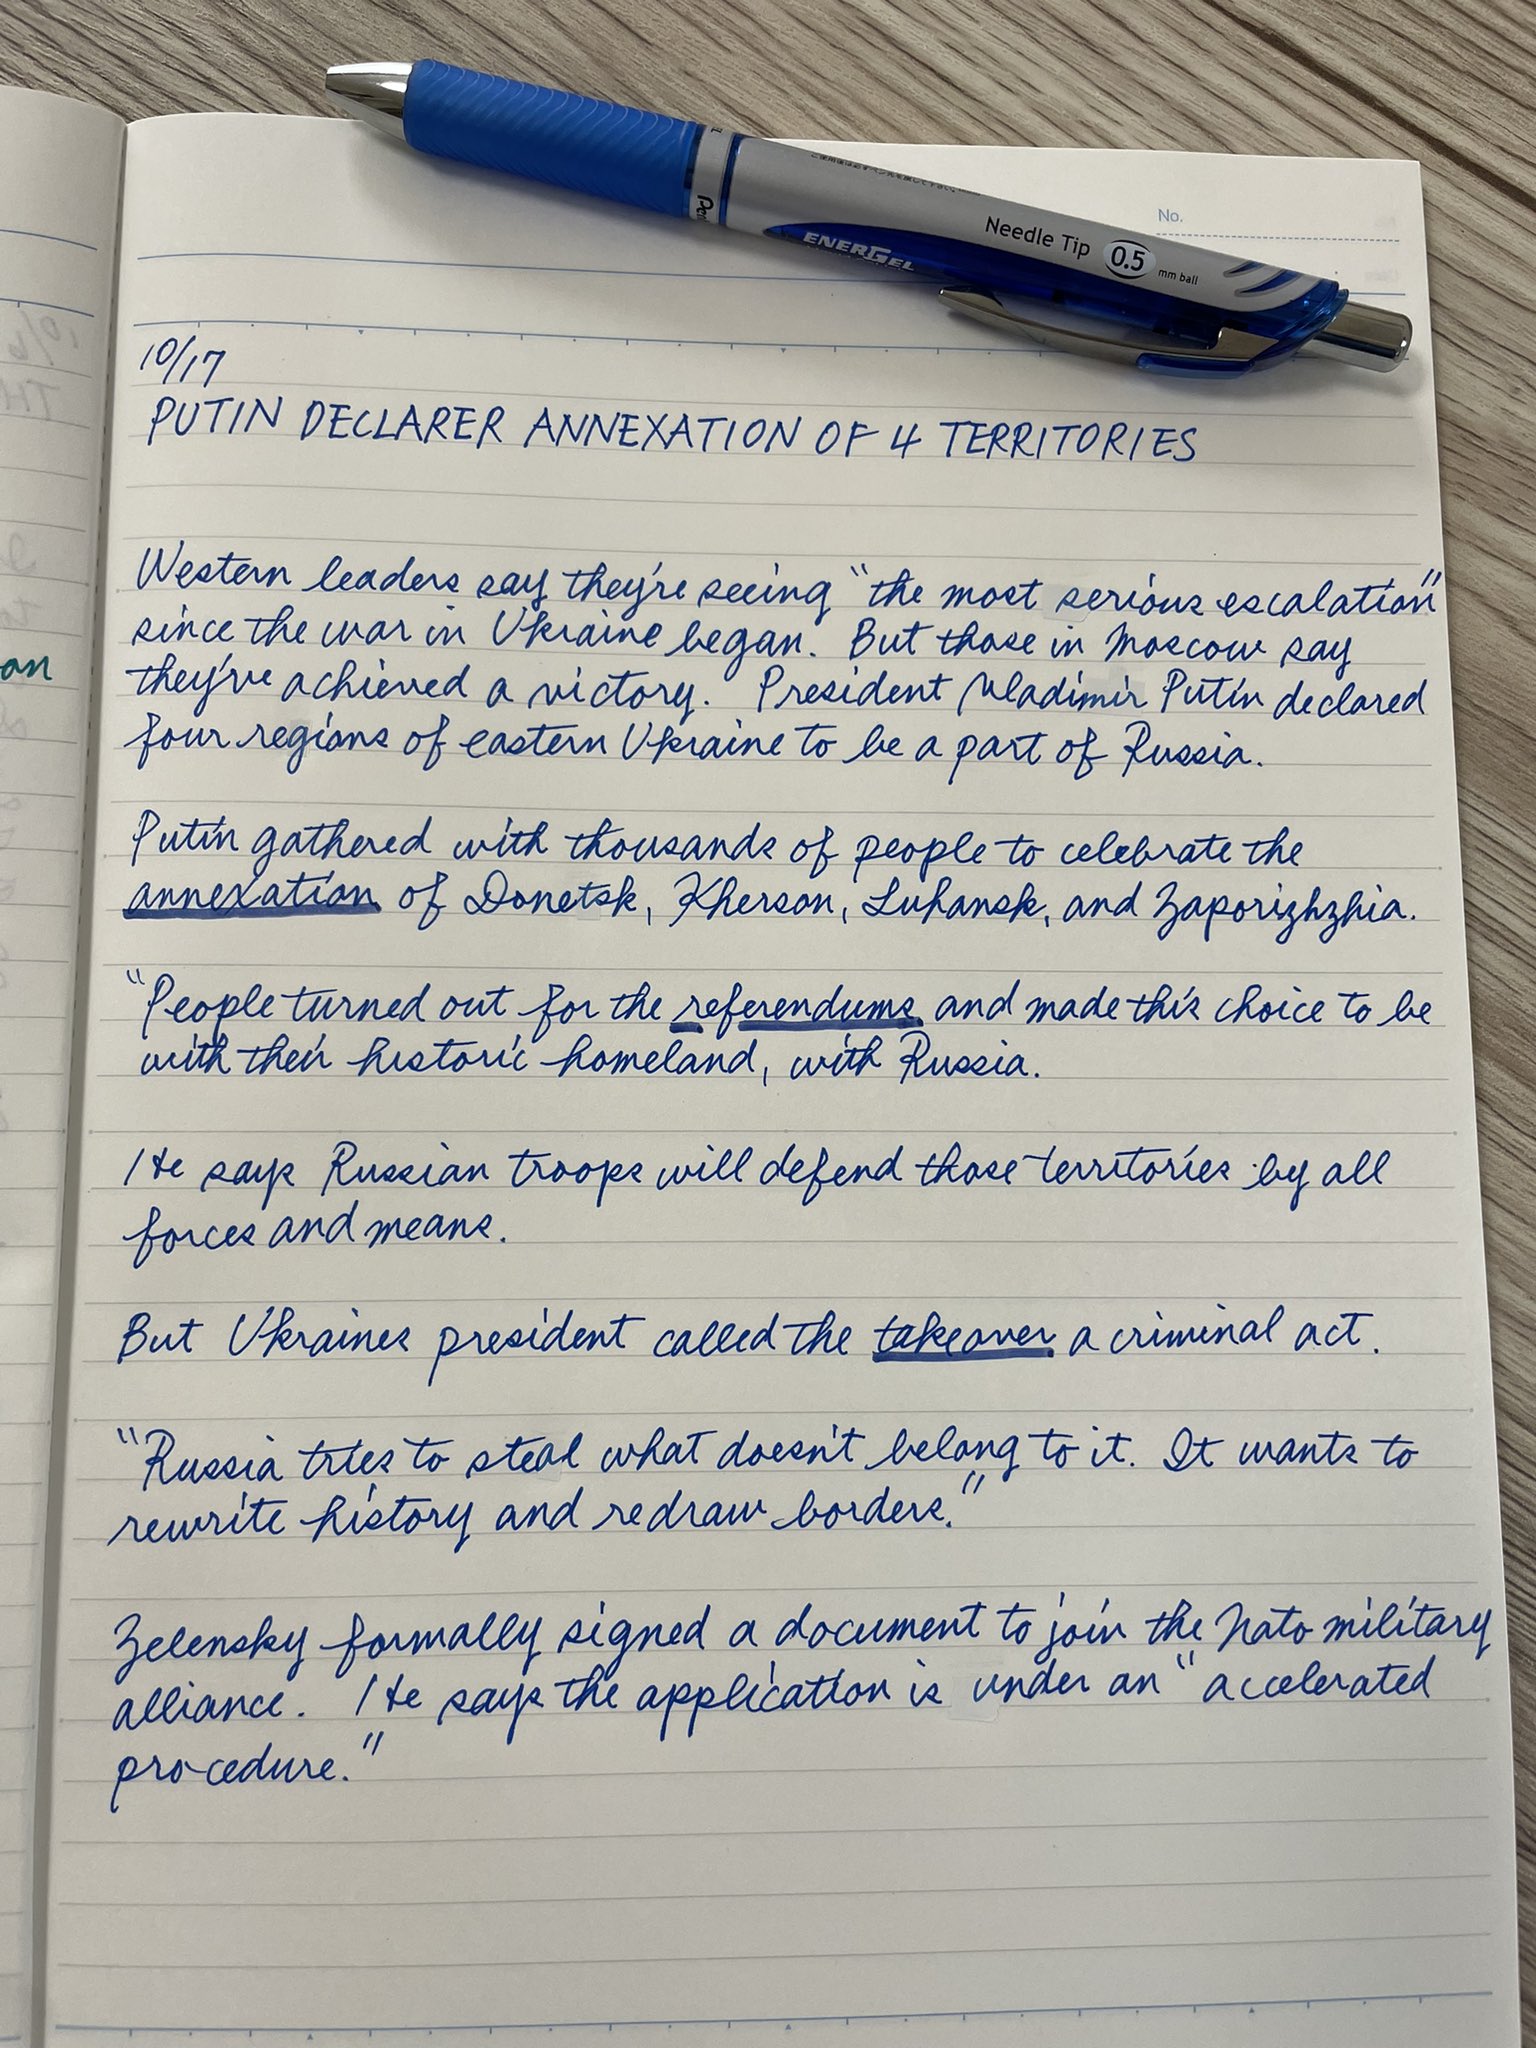 Pen
ENERGEL
Needle Tip 0.5 mm ball
No.
10/17
PUTIN DECLARER ANNEXATION OF 4 TERRITORIES
Western leaders say they're seeing "the most serious escalation"
since the war in Ukraine began. But those in Moscow say
they've achieved a victory. President Vladimir Putin declared
four regions of eastern Ukraine to be a part of Russia.
Putin gathered with thousands of people to celebrate the
annexation of Donetsk, Kherson, Luhansk, and Zaporizhzhia.
"People turned out for the referendums and made this choice to be
with their historic homeland, with Russia.
He says Russian troops will defend those territories by all
forces and means.
But Ukraines president called the takeover a criminal act.
"Russia tries to steal what doesn't belong to it. It wants to
rewrite history and redraw borders."
Zelensky formally signed a document to join the Nato military
alliance. He says the application is under an "accelerated
procedure."
an